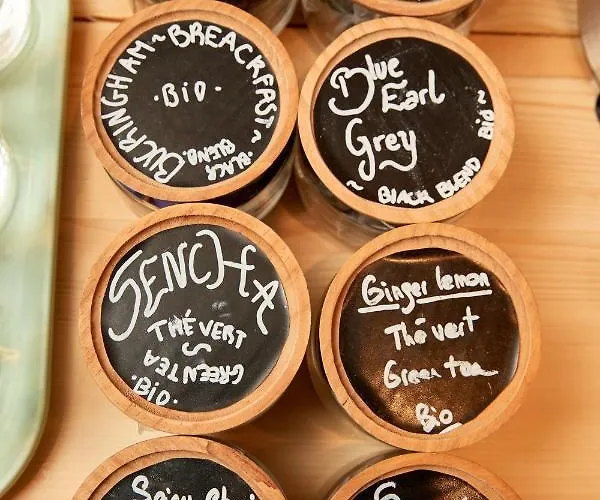 BUCKINGHAM~BREACKFAST~
·BiO·
·BLACK
BLEND.
Blue
Earl
Grey
~ BLACK BLEND Bio ~
SENCHA
THÉ VERT
~
GREEN TEA
·BiO·
Ginger lemon
Thé vert
Green tea
Bio
Spicy